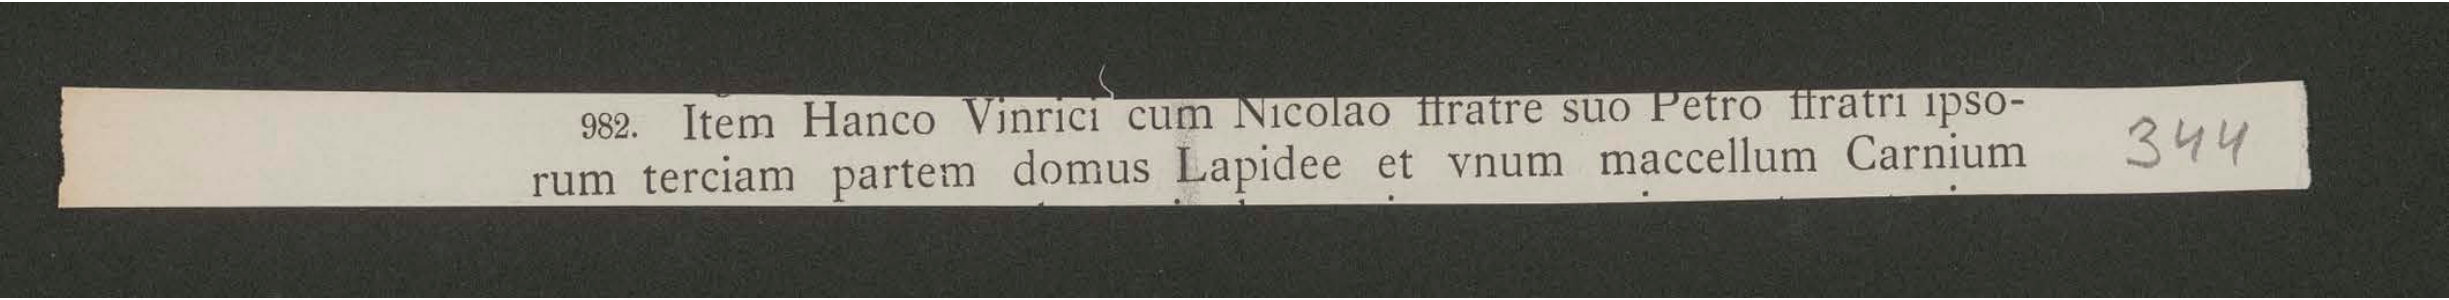 982. Item Hanco Vinrici cum Nicolao ffratre suo Petro ffratri ipso-
rum terciam partem domus Lapidee et vnum maccellum Carnium
344